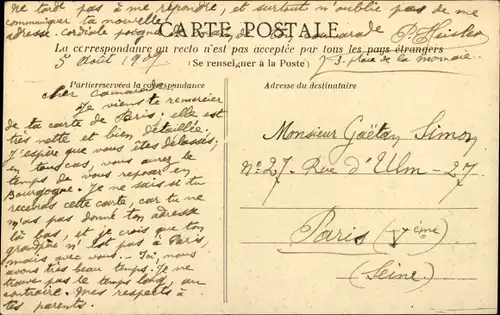 ne tarde pas à me répondre, et surtout n'oublie pas de me
communiquer ta nouvelle
adresse. Cordiale poignée de main de ton camarade P. Heisler
73 place de la monnaie
CARTE POSTALE
La correspondance au recto n'est pas acceptée par tous les pays étrangers
(Se renseigner à la Poste)
5 Août 1907
Partie réservée à la correspondance
Adresse du destinataire
Cher Camarade,
Je viens te remercier
de ta carte de Paris; elle est
très nette et bien détaillée.
J'espère que vous êtes délassés;
en tous cas, vous aurez le
temps de vous reposer en
Bourgogne. Je ne sais si tu
recevras cette carte, car tu ne
m'as pas donné ton adresse
là bas, et je crois que ton
grandpas n'est pas à Paris,
mais avec vous. — Ici, nous
avons très beau temps. Je ne
trouve pas le temps long, au
contraire. Mes respects à
tes parents.
Monsieur Gaëtan Simon
No 27. Rue d'Ulm - 27
Paris (Vème)
(Seine)